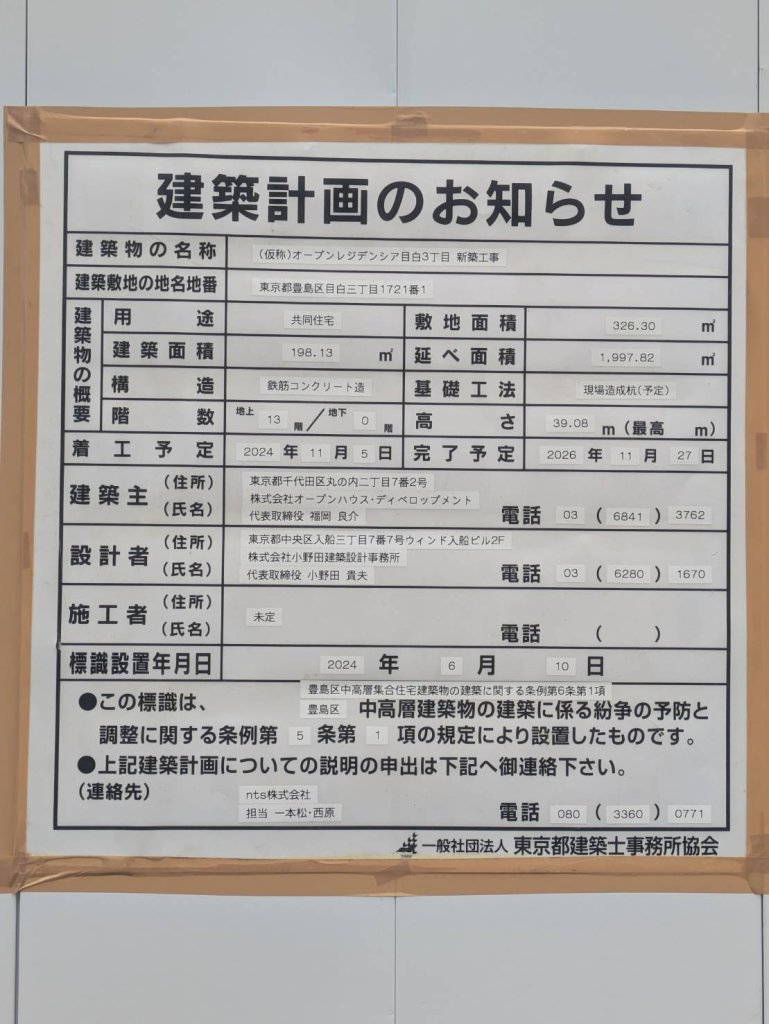 建築計画のお知らせ
建築物の名称 (仮称)オープンレジデンシア目白3丁目 新築工事
建築敷地の地名地番 東京都豊島区目白三丁目1721番1
建築物の概要
用途 共同住宅 敷地面積 326.30 ㎡
建築面積 198.13 ㎡ 延べ面積 1,997.82 ㎡
構造 鉄筋コンクリート造 基礎工法 現場造成杭(予定)
階数 地上 13 階 / 地下 0 階 高さ 39.08 m (最高 m)
着工予定 2024 年 11 月 5 日 完了予定 2026 年 11 月 27 日
建築主 (住所) (氏名)
東京都千代田区丸の内二丁目7番2号
株式会社オープンハウス・ディベロップメント
代表取締役 福岡 良介 電話 03 ( 6841 ) 3762
設計者 (住所) (氏名)
東京都中央区入船三丁目7番7号ウィンド入船ビル2F
株式会社小野田建築設計事務所
代表取締役 小野田 貴夫 電話 03 ( 6280 ) 1670
施工者 (住所) (氏名)
未定 電話 ( )
標識設置年月日 2024 年 6 月 10 日
豊島区中高層集合住宅建築物の建築に関する条例第6条第1項
●この標識は、 豊島区 中高層建築物の建築に係る紛争の予防と
調整に関する条例第 5 条第 1 項の規定により設置したものです。
●上記建築計画についての説明の申出は下記へ御連絡下さい。
(連絡先) nts株式会社
担当 一本松・西原 電話 080 ( 3360 ) 0771
一般社団法人 東京都建築士事務所協会